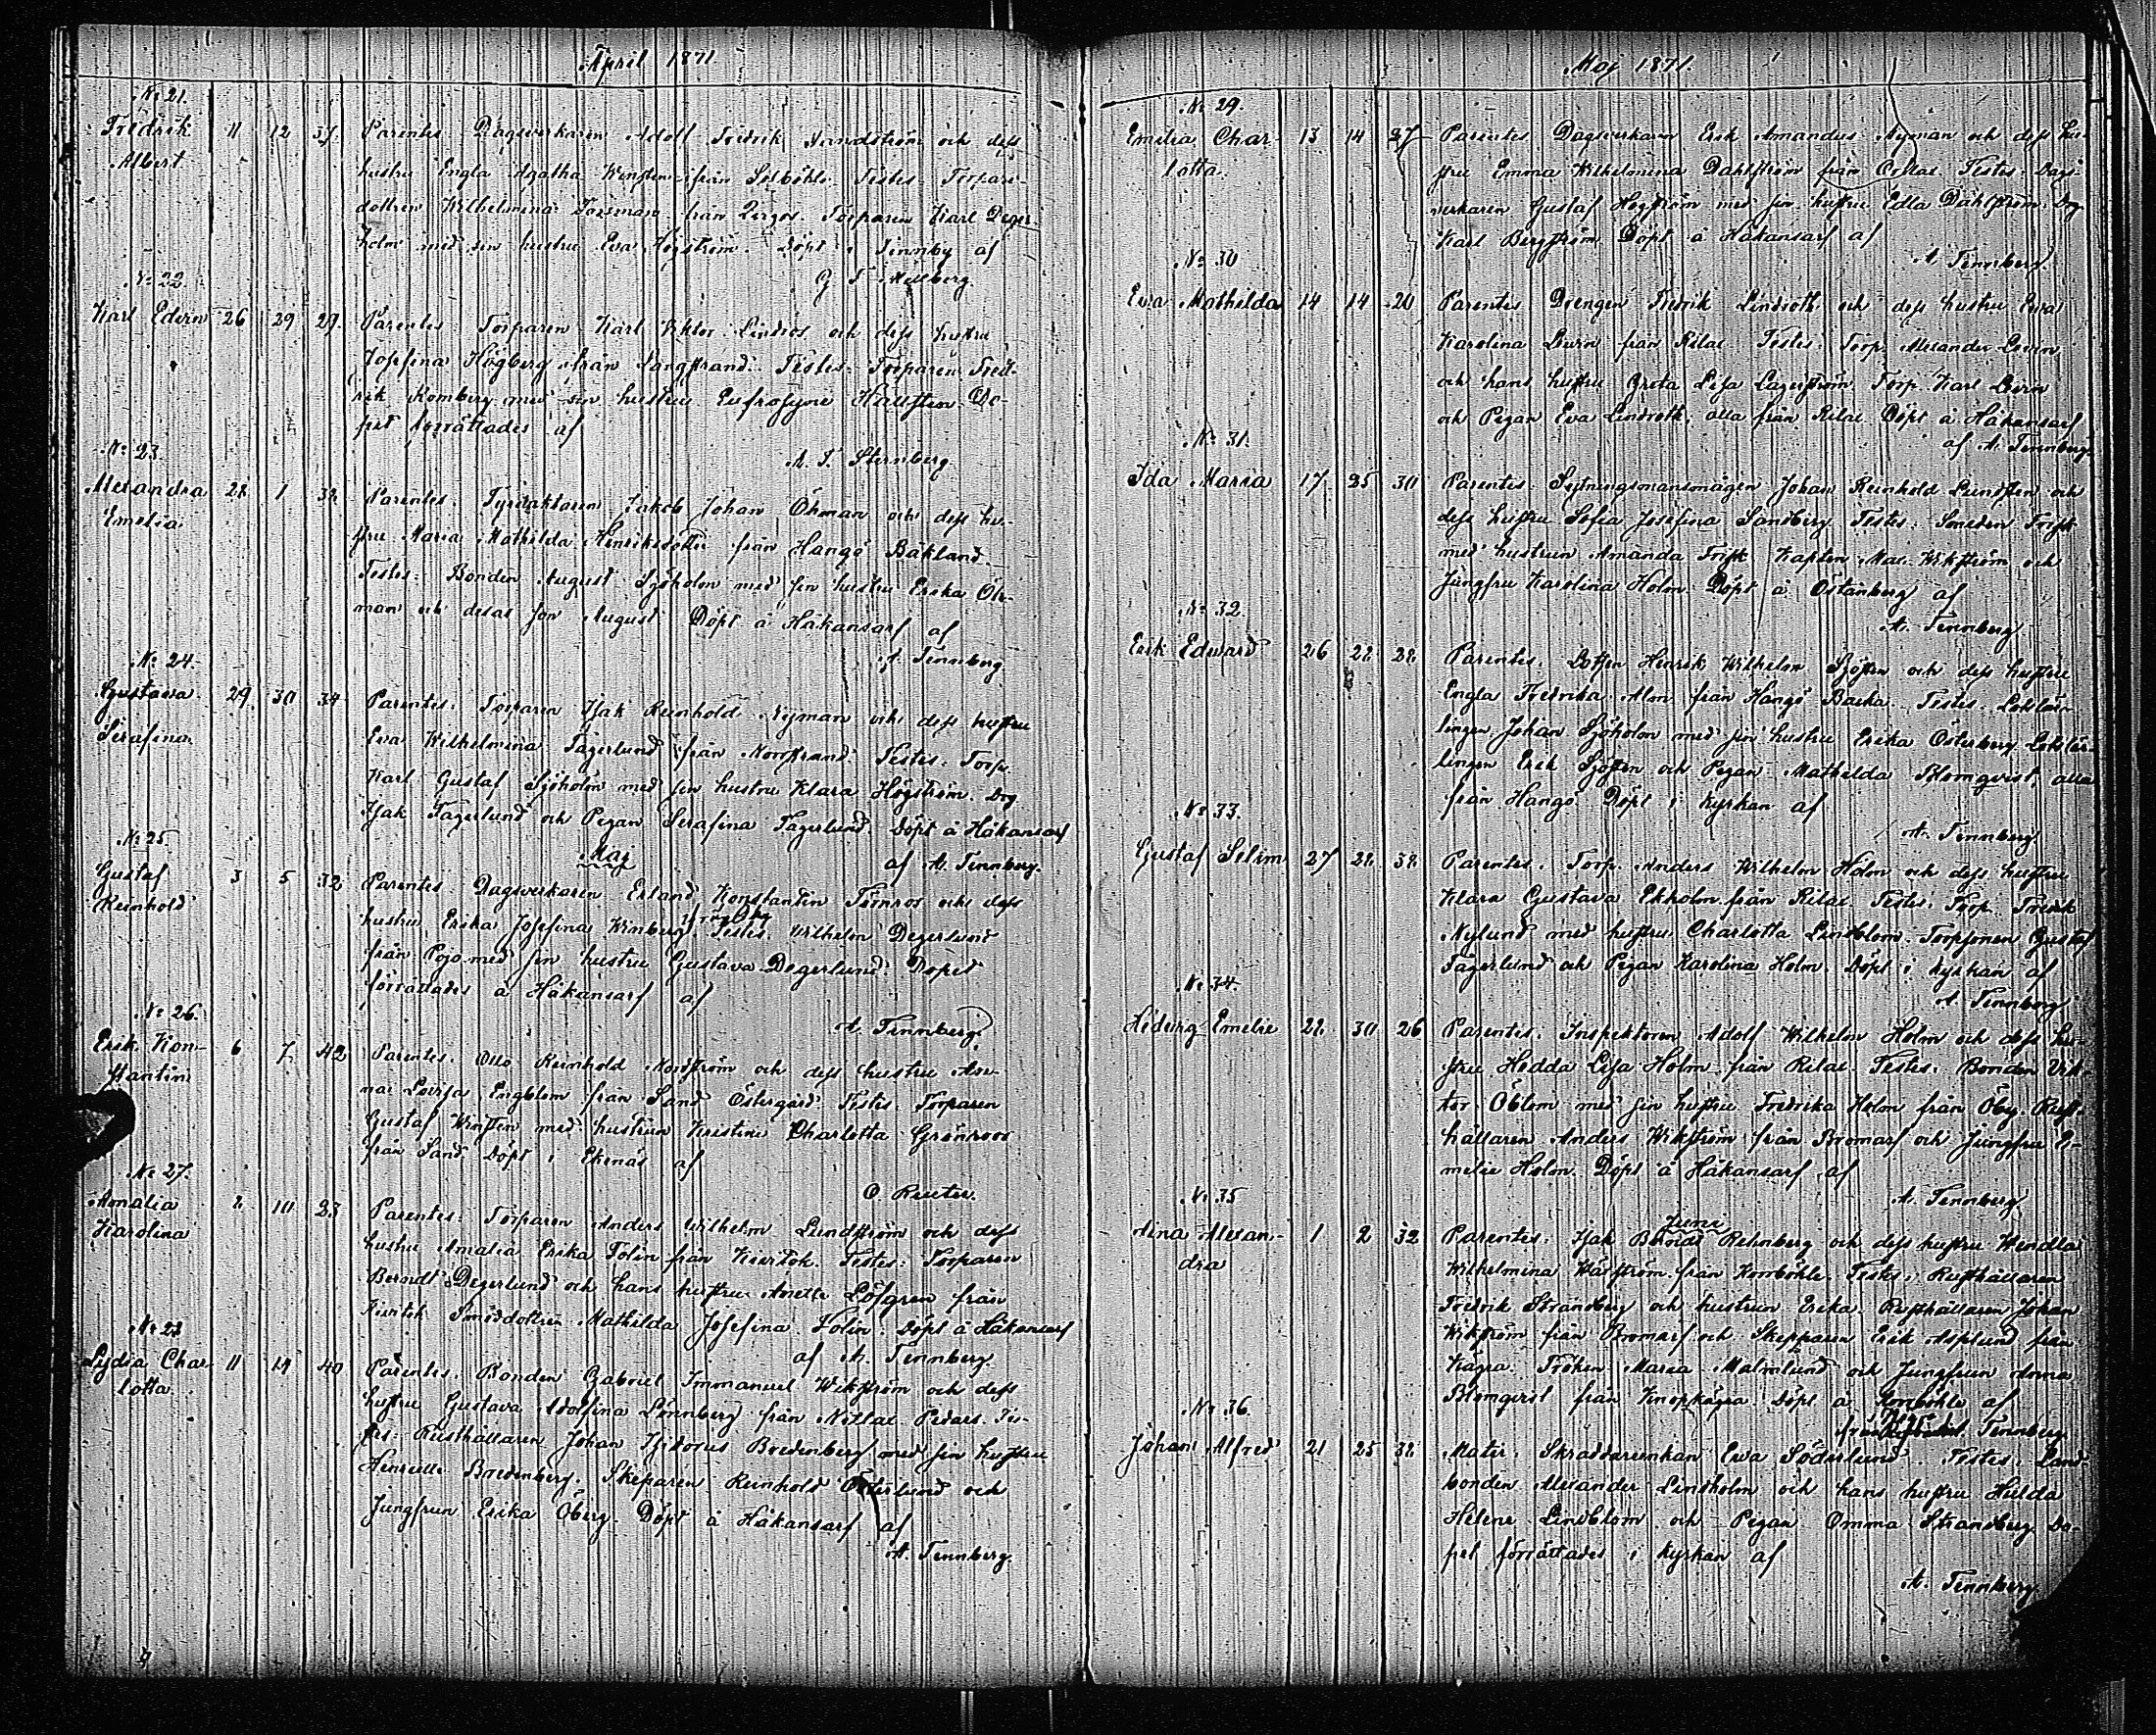 April 1871
No 21.
Fredrik 11 12 37. Parentes Dagsverkaren Adolf Fredrik och dess
Albert
hustru Engla Agatha från Solböhle Testes Torpare-
dottren Wilhelmina från Torparen Karl Deger-
holm med sin hustru Eva Högström. Döpt i Tennby af
G T Mellberg
No 22.
Karl Edvin 26 29 29. Parentes Torparen Karl Viktor Lindros och dess hustru
Josefina Högberg från Långstrand. Testes: Torparen Fred-
rik Romberg med sin hustru Eufrosyne Hallsten. Do-
pet förrättades af
A. T. Sternberg
No 23.
Alexandra 28 1 32 Parentes. Jakob Johan Öhman och dess hu-
Emelia
stru Maria Mathilda Henriksdotter från Hangö Bäkland.
Testes: Bonden August Sjöholm med sin hustru Erika Öh-
man och deras son August Döpt å Håkansarf af
A. Tennberg
No 24.
Gustava 29. 30 34 Parentes. Torparen Isak Reinhold Nyman och dess hustru
Serafina
Eva Wilhelmina Fagerlund från Norrstrand. Testes: Torp.
Karl Gustaf Sjöholm med sin hustru Klara Högström. Drg
Isak Fagerlund och Pegan Serafina Fagerlund. Döpt å Håkansarf
af A. Tennberg.
Maj
No 25
Gustaf 3 5 32 Parentes Dagsverkaren Erland Konstantin Törnros och dess
Reinhold
hustru Erika Josefina Winberg Testes. Wilhelm Degerlund
från Pojo med sin hustru Gustava Degerlund Dopet
förrättades å Håkansarf af
A. Tennberg
No 26.
Erik Kon- 6 7 42 Parentes. Otto Reinhold Nordström och dess hustru An-
stantin
na Lovisa Engblom från Sand Östergård. Testes. Torparen
Gustaf Winsten med hustrun Kristina Charlotta Grönroos
från Sand Döpt i Ekenäs af
O Reuter.
No 27.
Amalia 2 10 23 Parentes: Torparen Anders Wilhelm Lundström och dess
Karolina
hustru Amalia Erika Tolin från Kivitok. Testes: Torparen
Berndt Degerlund och hans hustru Anette Löfgren från
Kivitok Smeddottren Mathilda Josefina Tolin. Döpt å Håkansarf
af A. Tennberg.
No 28
Lydia Char- 11 14 40 Parentes. Bonden Gabriel Immanuel Wikström och dess
lotta.
hustru Gustava Adolfina Lönnberg från Nitlax Pedars. Tes-
tes: Rusthållaren Johan Isidorus Bredenberg med sin hustru
Henriette Bredenberg. Skeparen Reinhold Österlund och
Jungfrun Erika Öberg. Döpt å Håkansarf af
A. Tennberg.
Maj 1871.
No 29.
Emelia Char- 13 14 27 Parentes Dagsverkaren Erik Amandus Nyman och dess hu-
lotta.
stru Emma Wilhelmina Dahlström från Testes. Dags-
verkaren Gustaf Högström med sin hustru Edla Dahlström. Drg
Karl Bergström Döpt å Håkansarf af
A. Tennberg.
No 30
Eva Mathilda 14 14 20 Parentes Drengen Fredrik Lindroth och dess hustru Eva
Karolina från Rilax Testes: Torp. Alexander
och hans hustru Greta Lisa Lagerström Torp. Karl
och Pegan Eva Lindroth, alla från Rilax Döpt å Håkansarf
af A. Tennberg.
No 31.
Ida Maria 17 25 30 Parentes. Johan Reinhold Lundsten och
dess hustru Sofia Josefina Sandberg Testes: Smeden Frisk
med hustrun Amanda Frisk Kapten Wikström och
Jungfru Karolina Holm. Döpt å Östanberg af
A. Tennberg
No 32.
Erik Edward 26 28 28 Parentes. Lotsen Henrik Wilhelm Sjösten och dess hustru
Engla Fredrika Alm från Hangö Backa. Testes Lotslär-
lingen Johan Sjöholm med sin hustru Erika Österberg Lotslär-
lingen Erik Sjösten och Pegan Mathilda Blomqvist, alla
från Hangö Döpt i kyrkan af
A. Tennberg.
No 33.
Gustaf Selim 27 28 32 Parentes. Torp. Anders Wilhelm Holm och dess hustru
Klara Gustava Ekholm från Rilax. Testes. Torp. Fredrik
Nylund med hustru Charlotta Lindblom. Torpsonen Gustaf
Fagerlund och Pegan Karolina Holm. Döpt i kyrkan af
A. Tennberg
No 34.
Hedvig Emelie 22 30 26 Parentes. Inspektoren Adolf Wilhelm Holm och dess hu-
stru Hedda Lisa Holm från Rilax. Testes. Bonden Vik-
tor Öblom med sin hustru Fredrika Holm från Öby. Rust-
hållaren Anders Wikström från Bromarf och Jungfru E-
melie Holm. Döpt å Håkansarf af
A. Tennberg.
Juni
No 35
Aina Alexan- 1 2 32 Parentes. Isak Berndt Rehnberg och dess hustru Wendla
dra
Wilhelmina från Komböhle. Testes: Rusthållaren
Fredrik Strandberg och hustrun Erika. Rusthållaren Johan
Wikström från Bromarf och Skepparen Erik Asplund från
Kägra. Fröken Maria Malmlund och Jungfrun Anna
Blomqvist från Knopkägra. Döpt å Komböhle af
Tennberg.
No 36.
Johan Alfred 21 25 32 Mater. Skräddareenkan Eva Söderlund. Testes: Land-
bonden Alexander Lindholm och hans hustru Hulda
Helene Lindblom och Pegan Emma Strandberg. Do-
pet förrättades i kyrkan af
A. Tennberg.